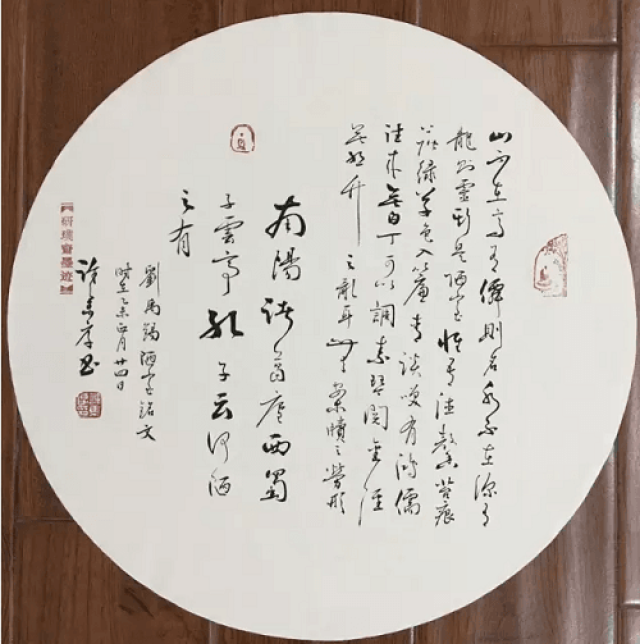 山不在高有僊則名水不在深有
龍則靈斯是陋室惟吾德馨苔痕
階綠草色入簾青談笑有鴻儒
往來無白丁可以調素琴閱金經
無絲竹之亂耳無案牘之勞形
南陽諸葛廬西蜀
子雲亭孔子云何陋
之有
劉禹錫陋室銘文
時在乙未正月廿四日
墨迹